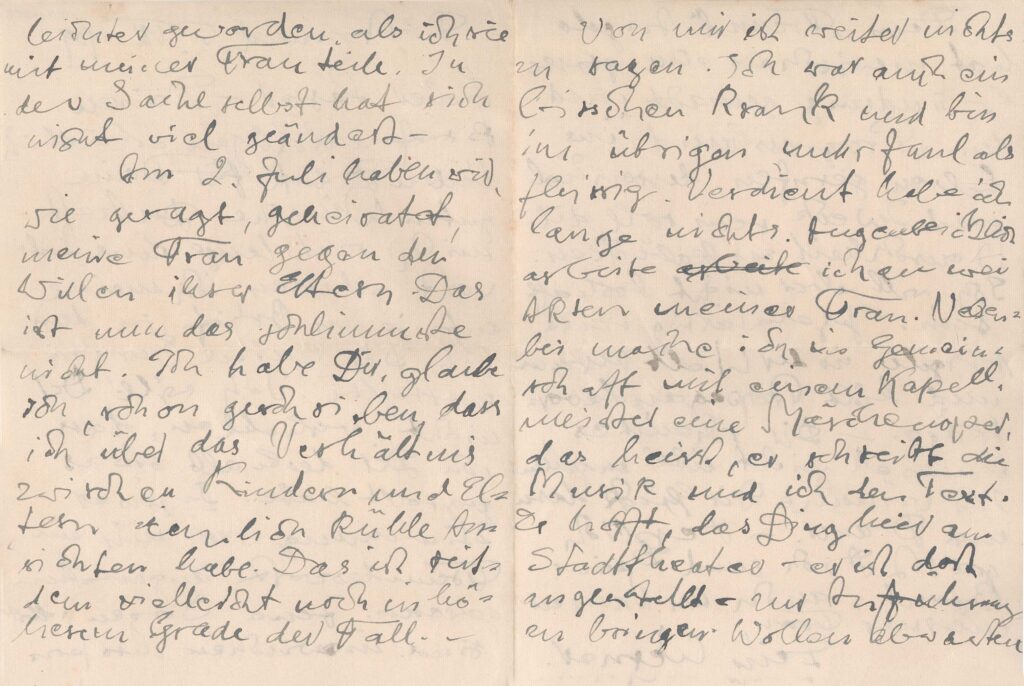 leichter geworden, als ich sie
mit meiner Frau teile. In
der Sache selbst hat sich
nicht viel geändert –
Am 2. Juli haben wir,
wie gesagt, geheiratet,
meine Frau gegen den
Willen ihrer Eltern. Das
ist nun das schlimmste
nicht. Ich habe Dir, glaube
ich, schon geschrieben, dass
ich über das Verhältnis
zwischen Kindern und El-
tern ziemlich kühle An-
sichten habe. Das ist seit-
dem vielleicht noch in hö-
herem Grade der Fall. –
Von mir ist weiter nichts
zu sagen. Ich war auch ein
bisschen krank und bin
im übrigen mehr faul als
fleissig. Verdient habe ich
lange nichts. Augenblicklich
arbeite arbeite ich an zwei
Akten meiner Frau. Neben-
bei mache ich in Gemein-
schaft mit einem Kapell-
meister eine Märchenoper,
das heisst, er schreibt die
Musik und ich den Text.
Er hofft, das Ding hier am
Stadttheater – er ist dort
angestellt – zur Aufführung
zu bringen. Wollen abwarten